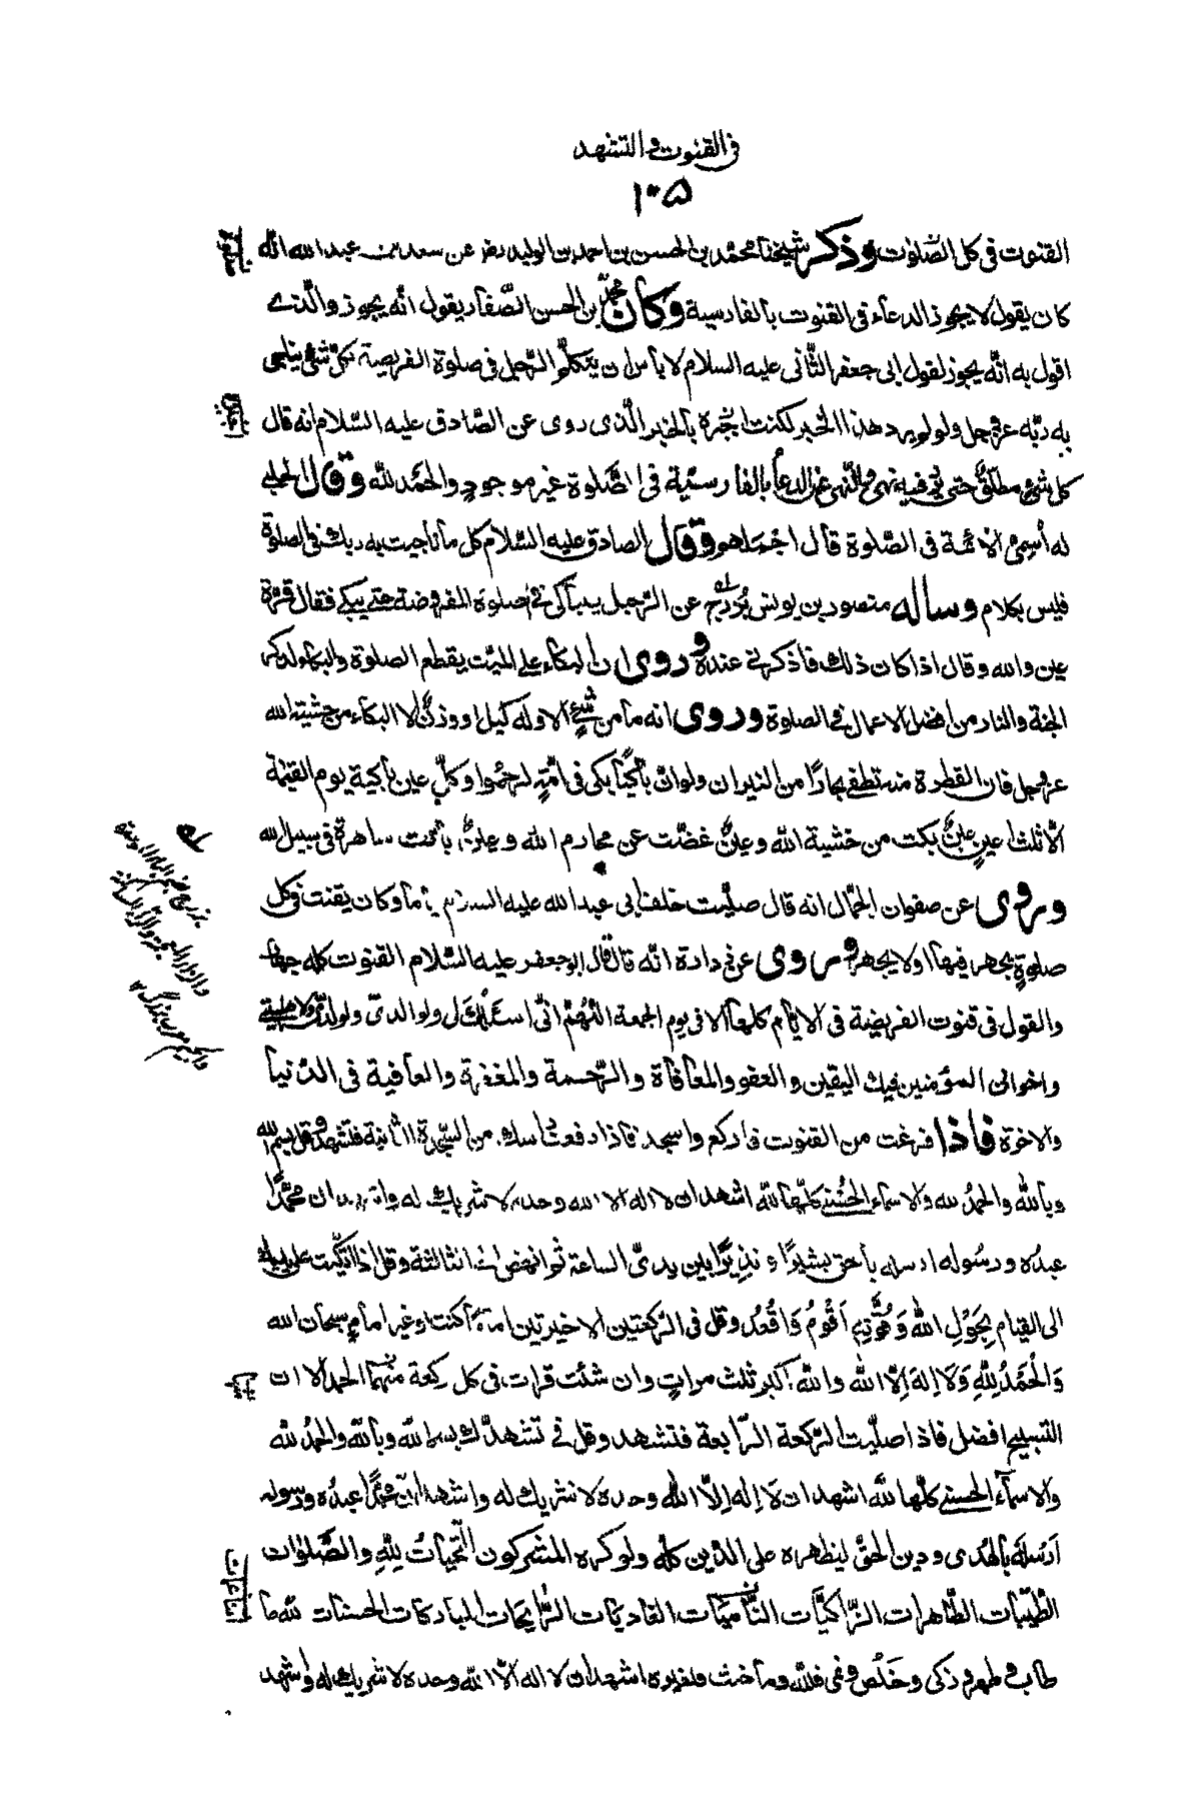 فى القنوت و التشهد
١٠٥
القنوت فى كل الصّلوات وذكر شيخنا محمّد بن الحسن بن احمد بن الوليد رض عن سعد بن عبد الله انّه
كان يقول لا يجوز الدعاء فى القنوت بالفارسية وكان محمّد بن الحسن الصّفار يقول انّه يجوز والّذى
اقول به انّه يجوز لقول ابى جعفر الثّانى عليه السلام لا باس ان يتكلّم الرّجل فى صلوة الفريضة بكلّ شئ يناجى
به ربّه عز و جل ولو لم يرد هذا الخبر لكنت اجيزه بالخبر الّذى روى عن الصّادق عليه السّلام انه قال
كل شئ مطلقٌ حتى يرد فيه نهى و النّهى عن الدعاء بالفارسيّة فى الصّلوة غير موجودٍ والحمد لله وقال الحلبى
له أسمّى الائمّة فى الصّلوة قال اجملهم وقال الصادق عليه السّلام كل ما ناجيت به ربك فى الصلوة
فليس بكلام وساله منصور بن يونس بُزُرج عن الرّجل يتباكى فى صلوة المفروضة حتى يبكى فقال قرّة
عين والله وقال اذا كان ذلك فاذكرنى عنده وروى ان البكاء على الميّت يقطع الصلوة والبكاء لذكر
الجنة والنار من افضل الاعمال فى الصلوة وروى انه ما من شئٍ الا وله كيل او وزن الا البكاء من خشية الله
عز و جل فان القطرة منه تطفى بحارًا من النيران ولو انّ باكيًا بكى فى امّةٍ لرحموا وكلّ عين باكية يوم القيمة
الّا ثلث اعينٍ عينٌ بكت من خشية الله وعينٌ غضّت عن محارم الله وعينٌ باتت ساهرة فى سبيل الله
وروى عن صفوان الجمّال انه قال صلّيت خلف ابى عبد الله عليه السلام اياما وكان يقنت فى كل
صلوةٍ يجهر فيها او لا يجهر وروى عن زرارة انّه قال قال ابو جعفر عليه السّلام القنوت كله جهار
والقول فى قنوت الفريضة فى الايّام كلها الا فى يوم الجمعة اللّهُمّ انّى اسئلك لى ولوالدىّ ولولدى ولاهل بيتى
واخوانى المؤمنين فيك اليقين والعفو والمعافاة والرّحمة والمغفرة والعافية فى الدّنيا
والاخرة فاذا فرغت من القنوت فاركع واسجد فاذا رفعت راسك من السّجدة الثانية فتشهّد وقل بسم الله
وبالله والحمدُ لله والاسماء الحُسنى كلّها لله اشهد ان لا اله الا الله وحده لا شريك له واشهد ان محمّدًا
عبدُه ورسُوله ارسله بالحق بشيرًا و نذيرًا بين يدىّ الساعة ثم انهض الى الثالثة وقل اذا اتّكيت على يديك
الى القيام بِحَوْلِ الله وَقُوَّتِهِ اَقُومُ وَاَقْعُدُ وقل فى الرّكعتين الاخيرتين اماما كنت او غير امامٍ سبحان الله
وَالْحَمْدُ لِلّهِ وَلَا اِلهَ اِلّا الله والله اكبر ثلث مراتٍ وان شئت قرات فى كل ركعة منهما الحمد الا ان
التسبيح افضل فاذا صلّيت الرّكعة الرّابعة فتشهد وقل فى تشهدك بسم الله وبالله والحمدُ لله
والاسمآء الحسنى كلّها لله اشهد ان لَا اِله اِلّا الله وحده لا شريك له واشهد انّ محمّدًا عبدُه ورسوله
اَرْسَلَهُ بالهُدى ودين الحقّ ليظهره على الدّين كلّه ولو كره المشركون التّحيّاتُ لِلّهِ والصّلوات
الطّيّبات الطّاهرات الزّاكيّات النّاميات الغاديات الرّايحات المباركات الحسنات لله ما
طاب و طهر و زكى وخَلُص و نمى فلله وما خبث فلغيره اشهد ان لا اله الا الله وحده لا شريك له واشهد